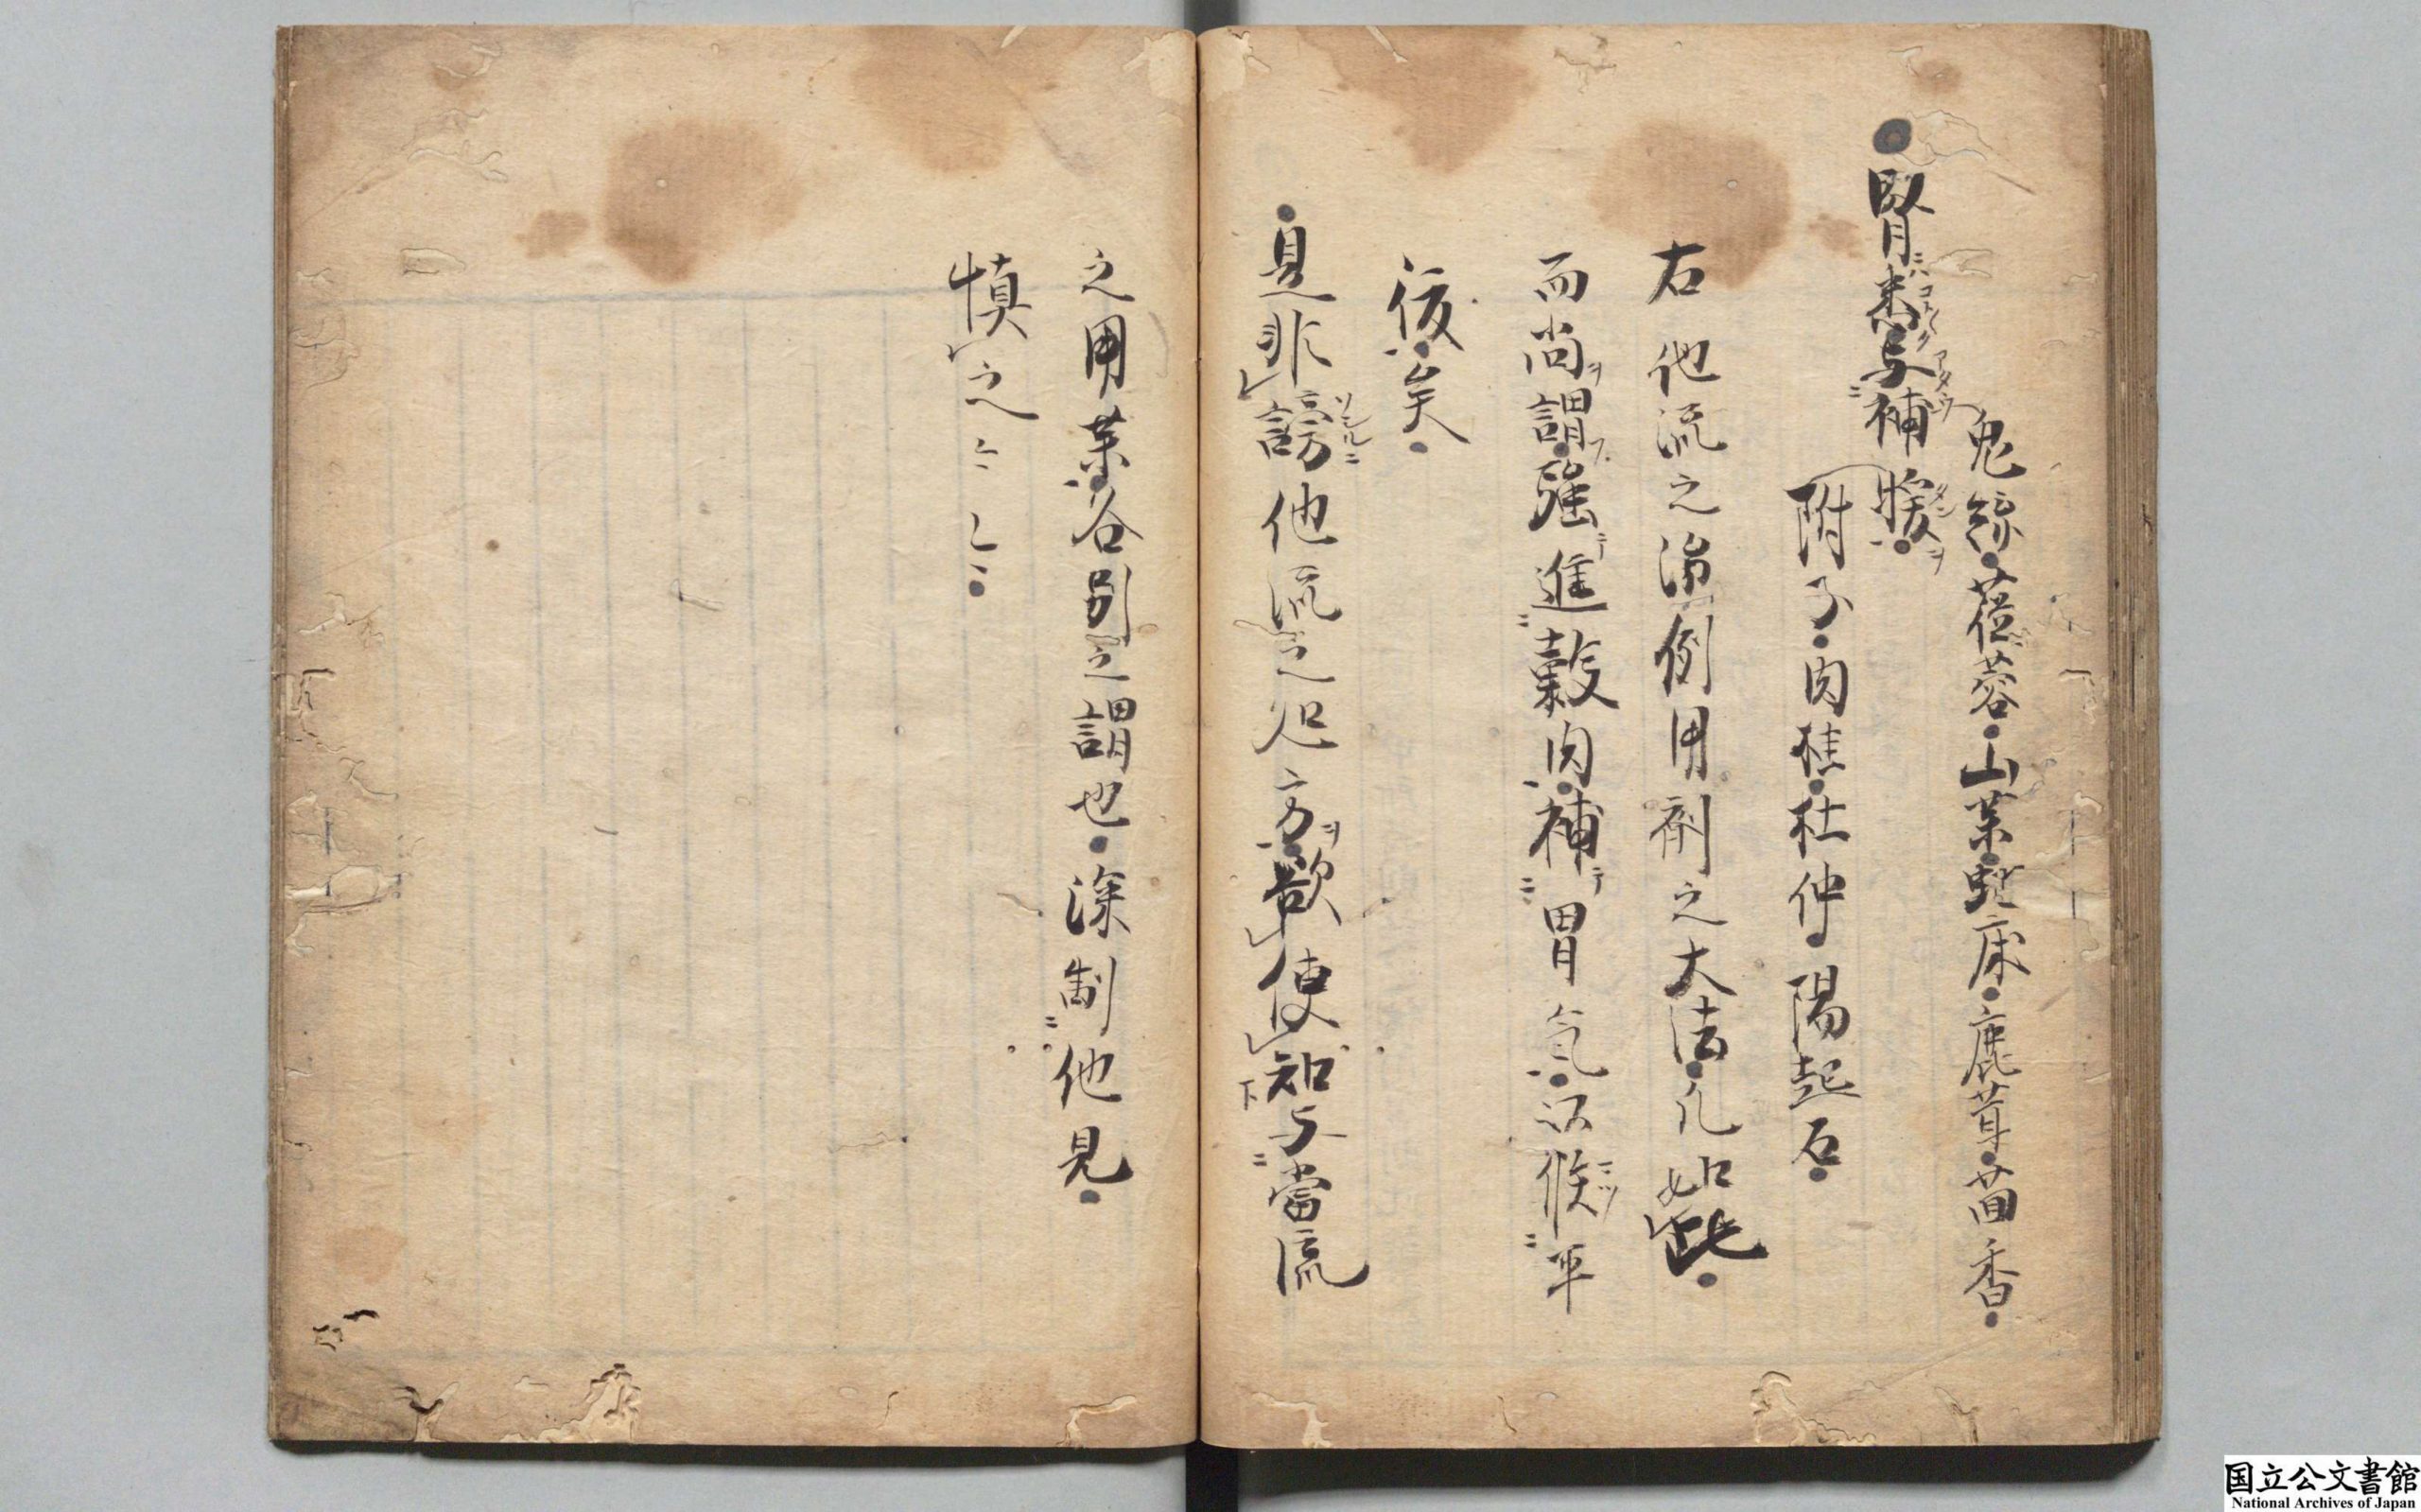 兎絲・蓯蓉・山薬・虵床・鹿茸・茴香・
●腎ニハ悉与補暖ヲ・
附子・肉桂・杜仲・陽起石・
右他流之治例用剤之大法・凡如此・
而尚謂強進穀肉・補胃氣・以候平
復矣・
・是非謗他流之処方欲使知与當流
之用薬各別之謂也・深制他見・
慎之々々・
国立公文書館
National Archives of Japan